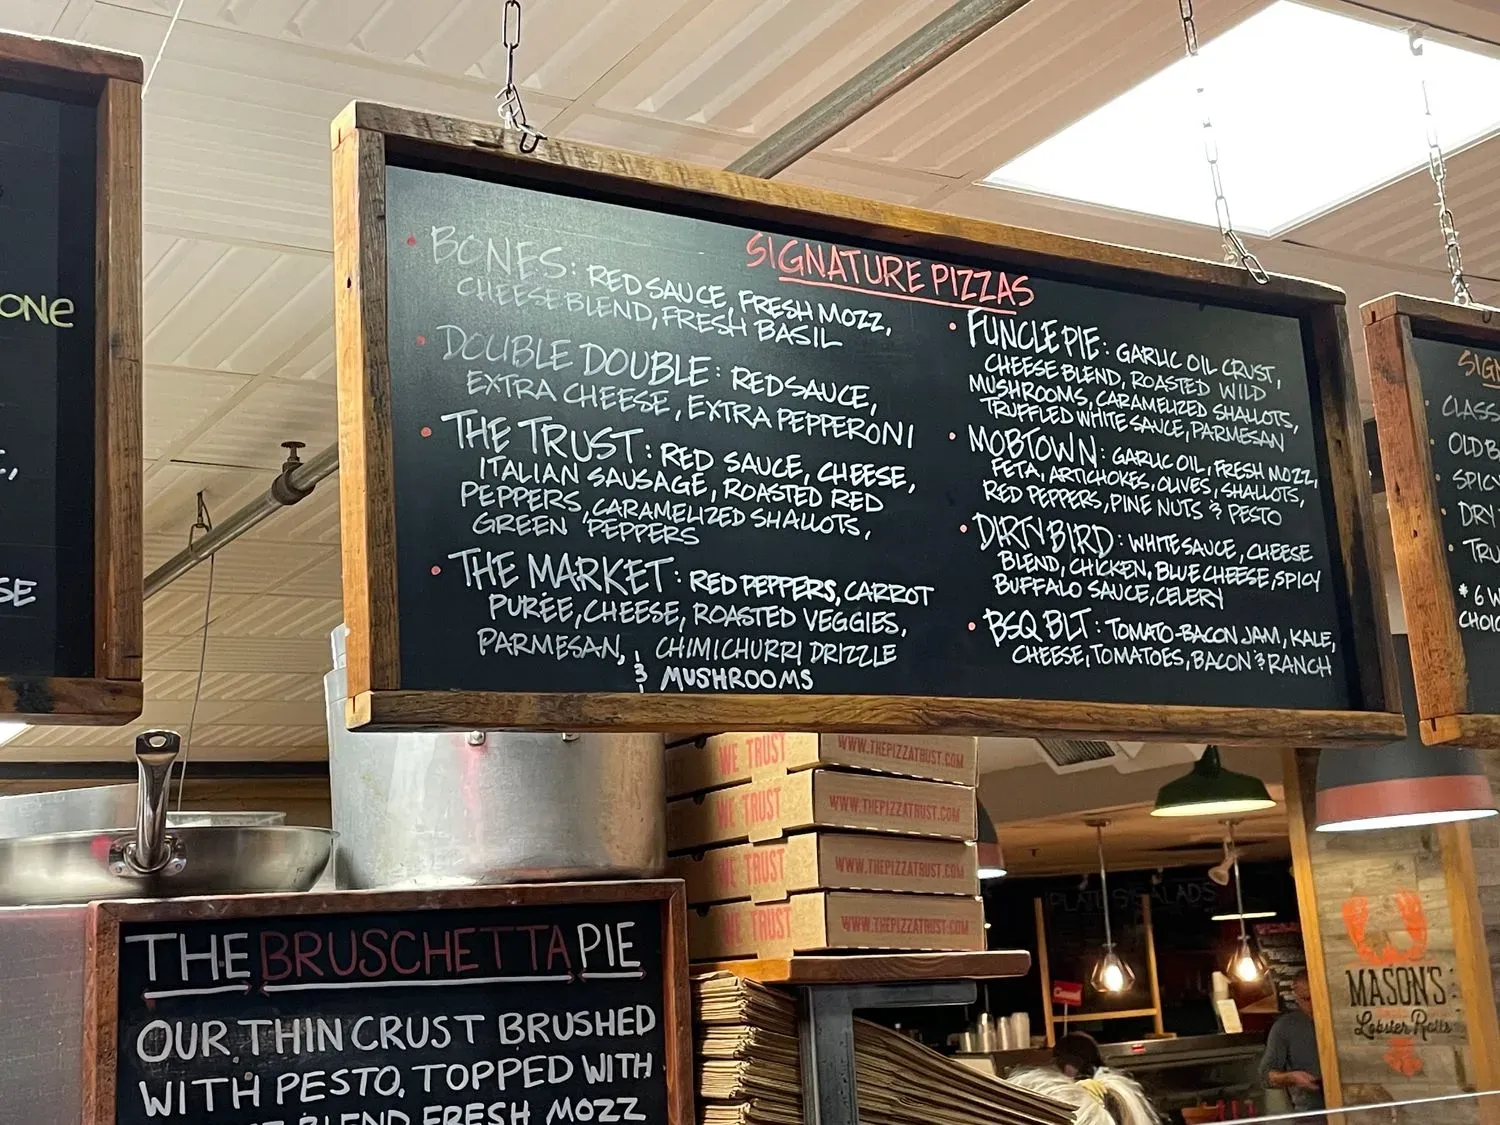 ONE
SE
SIGNATURE PIZZAS
• BONES: RED SAUCE, FRESH MOZZ,
CHEESE BLEND, FRESH BASIL
• DOUBLE DOUBLE: RED SAUCE,
EXTRA CHEESE, EXTRA PEPPERONI
• THE TRUST: RED SAUCE, CHEESE,
ITALIAN SAUSAGE, ROASTED RED
PEPPERS, CARAMELIZED SHALLOTS,
GREEN PEPPERS
• THE MARKET: RED PEPPERS, CARROT
PURÉE, CHEESE, ROASTED VEGGIES,
PARMESAN, CHIMICHURRI DRIZZLE
& MUSHROOMS
• FUNCLE PIE: GARLIC OIL CRUST,
CHEESE BLEND, ROASTED WILD
MUSHROOMS, CARAMELIZED SHALLOTS,
TRUFFLED WHITE SAUCE, PARMESAN
• MOBTOWN: GARLIC OIL, FRESH MOZZ,
FETA, ARTICHOKES, OLIVES, SHALLOTS,
RED PEPPERS, PINE NUTS & PESTO
• DIRTY BIRD: WHITE SAUCE, CHEESE
BLEND, CHICKEN, BLUE CHEESE, SPICY
BUFFALO SAUCE, CELERY
• BSQ BLT: TOMATO-BACON JAM, KALE,
CHEESE, TOMATOES, BACON & RANCH
SIG
CLASS
OLD B
SPICY
DRY
TRU
* 6 W
CHOIC
WE TRUST WWW.THEPIZZATRUST.COM
WE TRUST WWW.THEPIZZATRUST.COM
WE TRUST WWW.THEPIZZATRUST.COM
WE TRUST WWW.THEPIZZATRUST.COM
THE BRUSCHETTA PIE
OUR THIN CRUST BRUSHED
WITH PESTO, TOPPED WITH
BLEND FRESH MOZZ
SALADS
MASON'S
Lobster Rolls